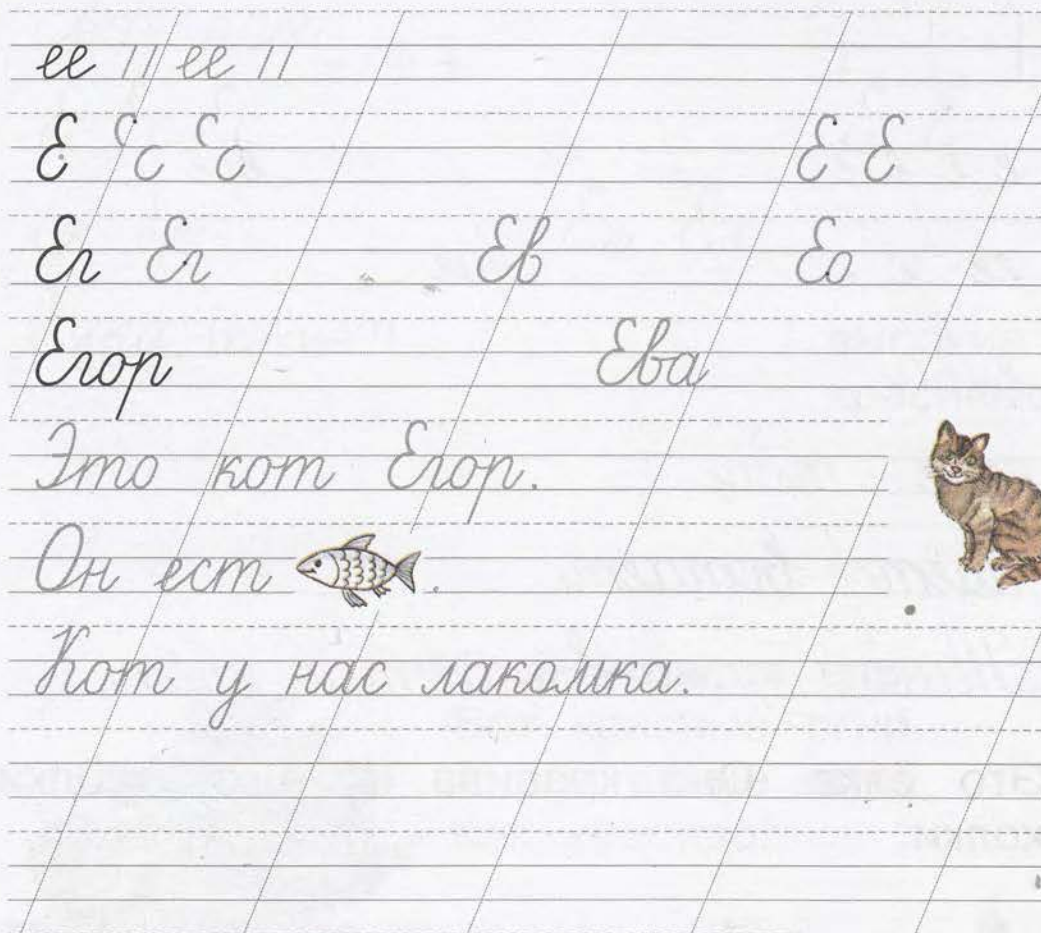 ее ее
Е Е Е
Ег Ег Ев Ео
Егор Ева
Это кот Егор.
Он ест .
Кот у нас лакомка.